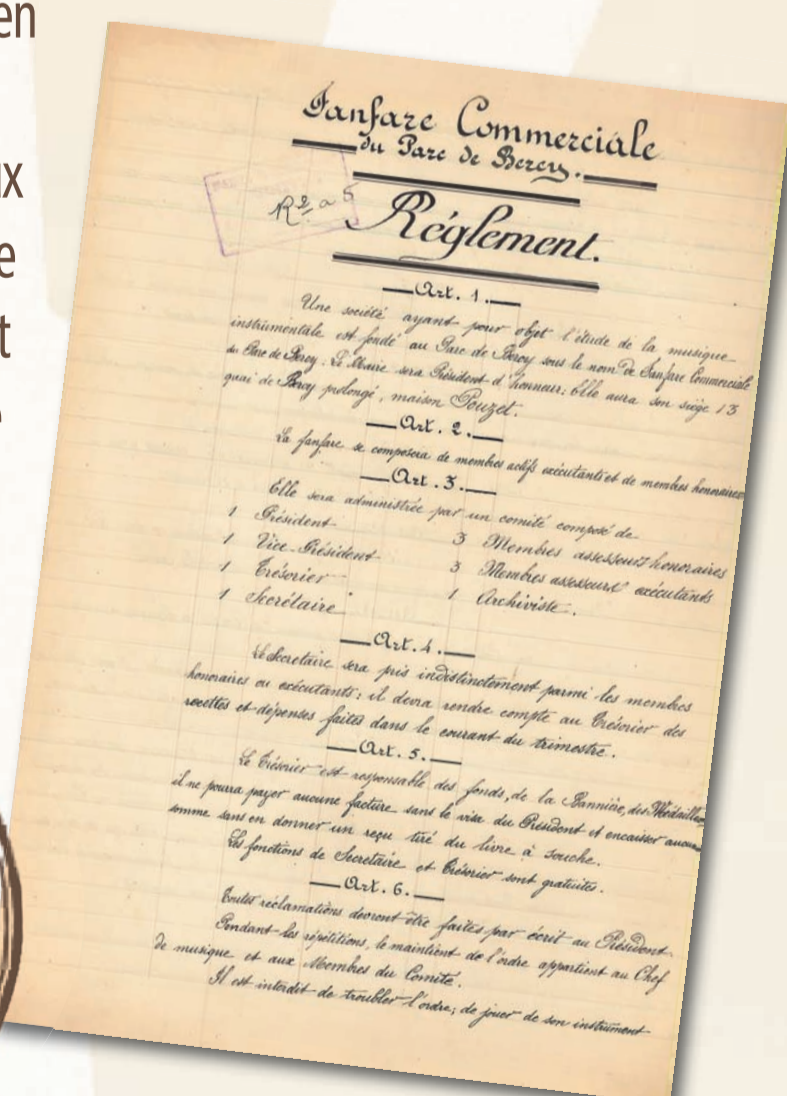 en
ux
e
t
Fanfare Commerciale
du Parc de Bercy.
R2 a 5
Réglement.
Art. 1.
Une société ayant pour objet l'étude de la musique
instrumentale est fondé au Parc de Bercy sous le nom de Fanfare Commerciale
du Parc de Bercy. Le Maire sera Président d'honneur; Elle aura son siège 13
quai de Bercy prolongé, maison Pouzet.
Art. 2.
La fanfare se composera de membres actifs exécutants et de membres honoraires
Art. 3.
Elle sera administrée par un comité composé de
1 Président 3 Membres assesseurs honoraires
1 Vice-Président 3 Membres assesseurs exécutants
1 Trésorier 1 Archiviste.
1 Secrétaire
Art. 4.
Le Secrétaire sera pris indistinctement parmi les membres
honoraires ou exécutants; il devra rendre compte au Trésorier des
recettes et dépenses faites dans le courant du trimestre.
Art. 5.
Le Trésorier est responsable des fonds, de la Bannière, des Médailles
il ne pourra payer aucune facture sans le visa du Président et encaisser aucune
somme sans en donner un reçu tiré du livre à souche.
Les fonctions de Secrétaire et Trésorier sont gratuites.
Art. 6.
Toutes réclamations devront être faites par écrit au Président.
Pendant les répétitions, le maintient de l'ordre appartient au Chef
de musique et aux Membres du Comité.
Il est interdit de troubler l'ordre; de jouer de son instrument